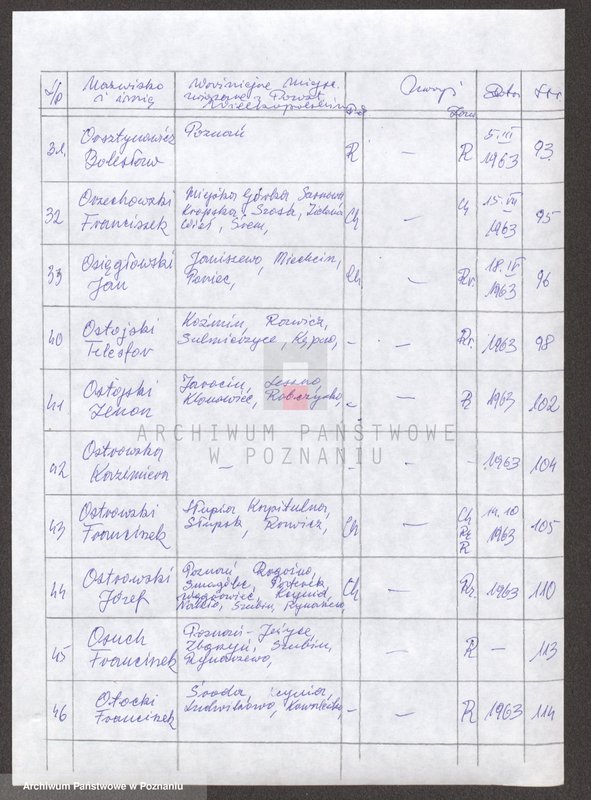 L/p Nazwisko i imię Uwagi Str
31. Osztynowicz Bolesław Poznań R — R 5.III 1963 93
32 Orzechowski Franciszek Miejska Górka Sarnowa Krajska, Szosta, Zielona Wieś, Śrem, Ch — Ch 15.VII 1963 95
33 Osięgłowski Jan Janiszewo, Miechcin, Poniec, Ch. — Rz. 18.IV 1963 96
40 Ostojski Telesfor Koźmin, Rawicz, Sulmierzyce, Kępno, — — Rz. 1963 98
41 Ostojski Zenon Jarocin, Leszno, Kłonowiec, Robczysko, — — R 1963 102
42 Ostrowska Kazimiera — — - 1963 104
43 Ostrowski Franciszek Słupia Kapitulna, Słupsk, Rawicz, Ch — Ch Rz R 14.10 1963 105
44 Ostrowski Józef Poznań Rogoźno, Smogulec, Wągrowiec, Kcynia, Nakło, Szubin, Ch — Rz. 1963 110
45 Osuch Franciszek Poznań-Jeżyce, Zbąszyń, Szubin, Rynarzewo, — R — 113
46 Otocki Franciszek Środa, Kcynia, Ludwikowo, — — R 1963 114
ARCHIWUM PAŃSTWOWE
W POZNANIU
Archiwum Państwowe w Poznaniu